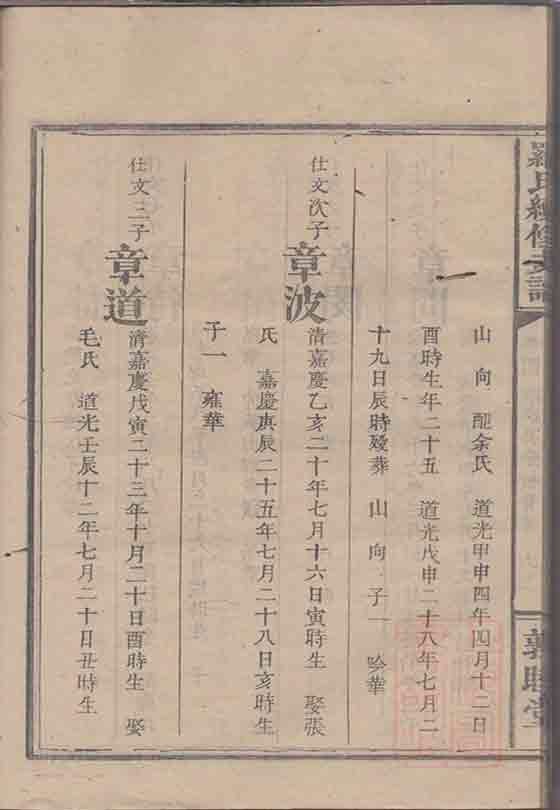 羅氏續修支譜
敦睦堂
山向 配余氏 道光甲申四年四月十二日
酉時生年二十五 道光戊申二十八年七月二
十九日辰時歿葬 山向 子一 吟華
仕文次子 章波 清嘉慶乙亥二十年七月十六日寅時生 娶張
氏 嘉慶庚辰二十五年七月二十八日亥時生
子一 雍華
仕文三子 章道 清嘉慶戊寅二十三年十月二十日酉時生 娶
毛氏 道光壬辰十二年七月二十日丑時生